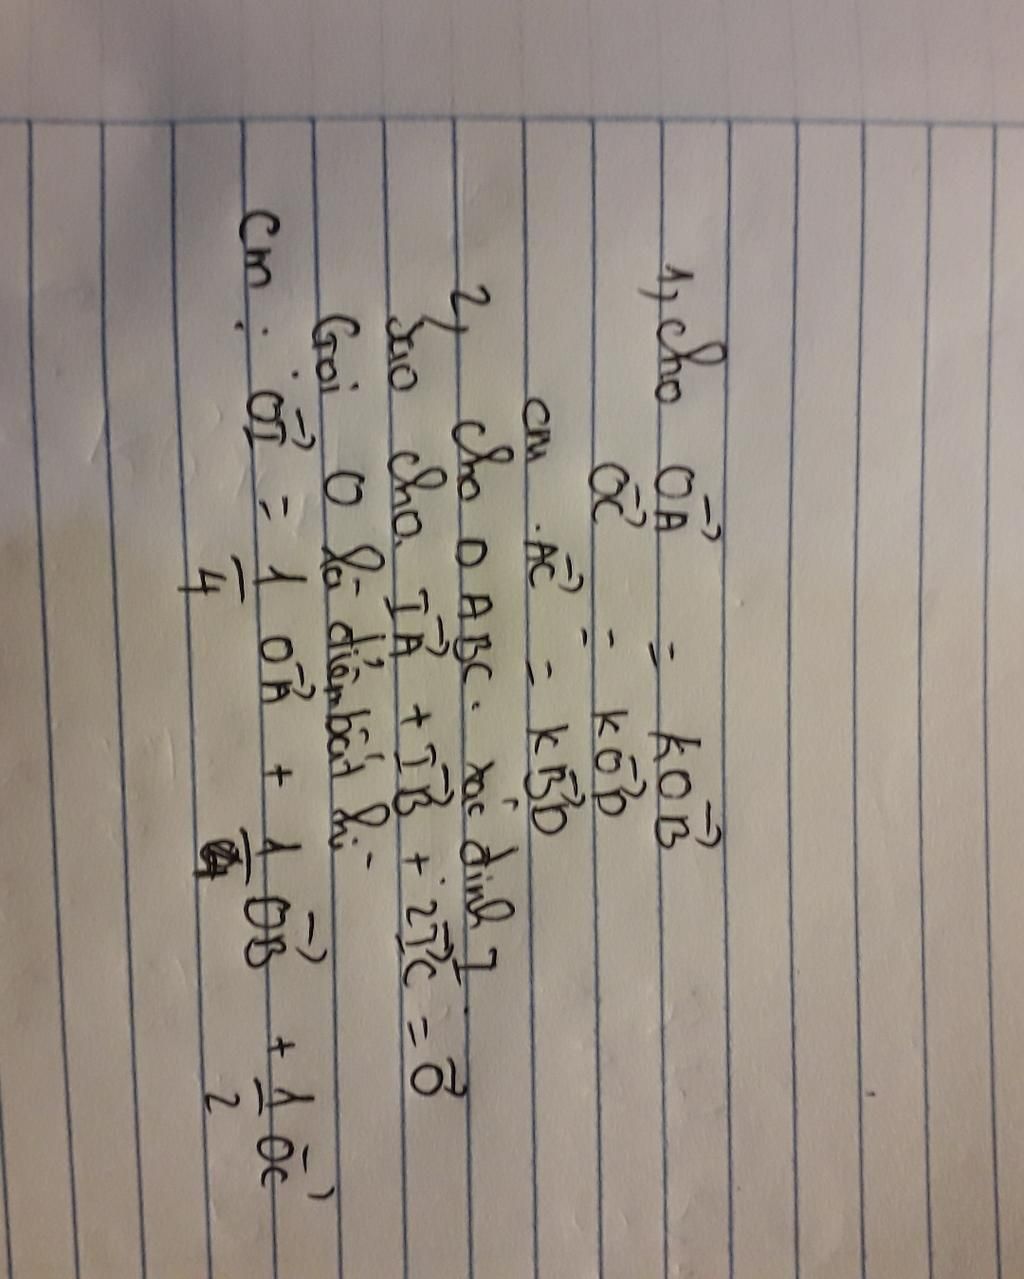 1, cho OA→ = kOB→
OC→ = kOD→
cm . AC→ = kBD→
2, cho Δ ABC. xác định I
sao cho IA→ + IB→ + 2IC→ = 0→
Gọi O là điểm bất kì
Cm : OI→ = 1/4 OA→ + 1/4 OB→ + 1/2 OC→